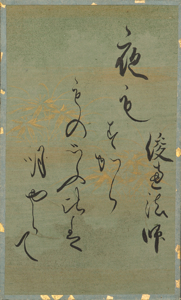 俊恵法師
夜もすから
もの思ふ比は
明やらて